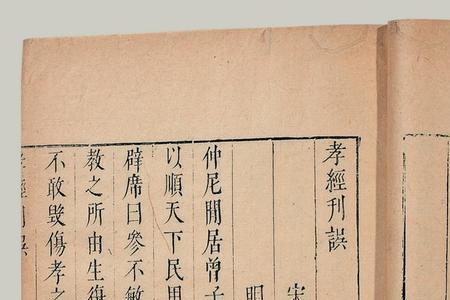 孝經刊誤
宋
明
仲尼閒居曾子
以順天下民用
辟席曰參不敏
教之所由生復
不敢毀傷孝之
孝經刊誤